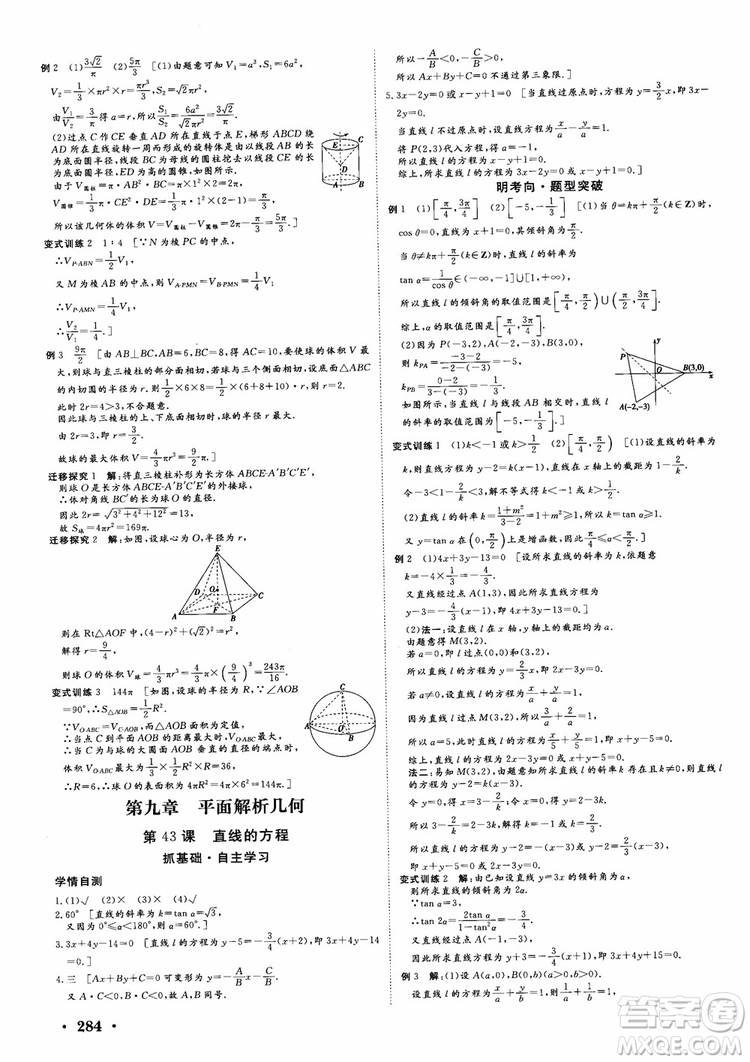 例2 (1)3√2/π (2)5π/3 [(1)由题意可知 V₁=a³,S₁=6a²,
V₂=1/3×π×r²×r=πr³/3,S₂=√2πr²,
由V₁/V₂=3/π,得a=r,所以S₁/S₂=6a²/√2πr²=3√2/π.
(2)过点C作CE垂直AD所在直线于点E,梯形ABCD绕
AD所在直线旋转一周而形成的旋转体是由以线段AB的长
为底面圆半径,BC为母线的圆柱挖去以线段CE的长
为底面圆半径,ED为高的圆锥,如图所示.
由于V圆柱=π·AB²·BC=π×1²×2=2π,
V圆锥=1/3π·CE²·DE=1/3π×1²×(2-1)=π/3,
所以该几何体的体积V=V圆柱-V圆锥=2π-π/3=5π/3.]
变式训练2 1∶4 [∵N为棱PC的中点,
∴V_P-ABN=1/2V₁,
又M为棱AB的中点,所以V_A-PMN=V_B-PMN,
∴V_P-AMN=1/4V₁,
∴V₂/V₁=1/4.]
例3 9π/2 [由AB⊥BC,AB=6,BC=8,得AC=10,要使球的体积V最
大,则球与直三棱柱的部分面相切,若球与三个侧面相切,设底面△ABC
的内切圆的半径为r,则1/2×6×8=1/2×(6+8+10)·r,则r=2.
此时2r=4>3,不合题意.
因此球与三棱柱的上、下底面相切时,球的半径R最大.
由2R=3,即R=3/2,
故球的最大体积V=4/3πR³=9/2π.]
迁移探究1 解:将直三棱柱补形为长方体ABCE-A′B′C′E′,
则球O是长方体ABCE-A′B′C′E′的外接球.
∴体对角线BC′的长为球O的直径.
因此2r=√3²+4²+12²=13,
故S球=4πr²=169π.
迁移探究2 解:如图,设球心为O,半径为r,
E
D
O
C
A
F
B
则在Rt△AOF中,(4-r)²+(√2)²=r²,
解得r=9/4,
则球O的体积V球=4/3πr³=4/3π×(9/4)³=243π/16.
变式训练3 144π [如图,设球的半径为R,∵∠AOB
=90°,∴S△AOB=1/2R².
∵V_O-ABC=V_C-AOB,而△AOB面积为定值,
∴当点C到平面AOB的距离最大时,V_O-ABC最大,
∴当C为与球的大圆面AOB垂直的直径的端点时,
体积V_O-ABC最大,为1/3×1/2R²×R=36,
∴R=6,∴球O的表面积为4πR²=4π×6²=144π.]
第九章 平面解析几何
第43课 直线的方程
抓基础·自主学习
学情自测
1.(1)√ (2)× (3)× (4)√
2.60° [直线的斜率为k=tan α=√3,
又因为0°≤α<180°,所以α=60°.]
3.3x+4y-14=0 [直线l的方程为y-5=-3/4(x+2),即3x+4y-14
=0.]
4.三 [Ax+By+C=0可变形为y=-A/Bx-C/B.
又AC<0,BC<0,故A,B同号.
· 284 ·
所以-A/B<0,-C/B>0,
所以Ax+By+C=0不过第三象限.]
5.3x-2y=0或x-y+1=0 [当直线过原点时,方程为y=3/2x,即3x-
2y=0.
当直线l不过原点时,设直线方程为x/a-y/a=1.
将P(2,3)代入方程,得a=-1,
所以直线l的方程为x-y+1=0.]
明考向·题型突破
例1 (1)[π/4,3π/4] (2)[-5,-1/3] [(1)当θ=kπ+π/2(k∈Z)时,
cos θ=0,直线为x+3=0,其倾斜角为π/2.
当θ≠kπ+π/2(k∈Z)时,直线l的斜率为
tan α=-1/cos θ∈(-∞,-1]∪[1,+∞),
所以直线l的倾斜角的取值范围是[π/4,π/2)∪(π/2,3π/4].
综上,α的取值范围是[π/4,3π/4].
(2)因为P(-3,2),A(-2,-3),B(3,0),
则k_PA=(-3-2)/(-2-(-3))=-5,
k_PB=(0-2)/(3-(-3))=-1/3.
如图所示,当直线l与线段AB相交时,直线l的
斜率的取值范围为[-5,-1/3].]
y
P
O
B(3,0)
x
A(-2,-3)
变式训练1 (1)k<-1或k>1/2 (2)[π/4,π/2) [(1)设直线的斜率为k,
则直线方程为y-2=k(x-1),直线在x轴上的截距为1-2/k.
令-3<1-2/k<3,解不等式得k<-1或k>1/2.
(2)直线l的斜率k=(1+m²)/(3-2)=1+m²≥1,所以k=tan α≥1.
又y=tan α在(0,π/2)上是增函数,因此π/4≤α<π/2.]
例2 (1)4x+3y-13=0 [设所求直线的斜率为k,依题意
k=-4×1/3=-4/3.
又直线经过点A(1,3),
因此所求直线方程为y-3=-4/3(x-1),
即4x+3y-13=0.]
(2)法一:设直线l在x轴,y轴上的截距均为a.
由题意得M(3,2).
若a=0,即l过点(0,0)和(3,2),
所以直线l的方程为y=2/3x,即2x-3y=0.
若a≠0,设直线l的方程为x/a+y/a=1,
因为直线l过点M(3,2),所以3/a+2/a=1,
所以a=5,此时直线l的方程为x/5+y/5=1,即x+y-5=0.
综上,直线l的方程为2x-3y=0或x+y-5=0.
法二:易知M(3,2),由题意知所求直线l的斜率k存在且k≠0,则直线l
的方程为y-2=k(x-3).
令y=0,得x=3-2/k;令x=0,得y=2-3k.
所以3-2/k=2-3k,解得k=-1或k=2/3.
所以直线l的方程为y-2=-(x-3)或y-2=2/3(x-3),
即x+y-5=0或2x-3y=0.
变式训练2 解:由已知设直线y=3x的倾斜角为α,
则所求直线的倾斜角为2α.
∵tan α=3,
∴tan 2α=2tan α/(1-tan²α)=-3/4.
又直线经过点A(-1,-3),
因此所求直线方程为y+3=-3/4(x+1),即3x+4y+15=0.
例3 解:设A(a,0),B(0,b)(a>0,b>0).
设直线l的方程为x/a+y/b=1,则1/a+1/b=1,
答案圈
MXQE.COM